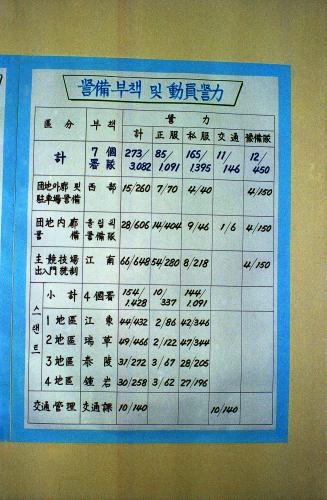 警備부책 및 動員警力
區分 부책 警力
計 正服 私服 交通 豫備隊
計 7個署隊 273/3,082 85/1,091 165/1,395 11/146 12/450
団地外廓 및 駐車場警備 西部 15/260 7/70 4/40 4/150
団地内廓警備 올림픽警備隊 28/606 14/404 9/46 1/6 4/150
主競技場出入門統制 江南 66/648 54/280 8/218 4/150
스탠드
小計 4個署 154/1,428 10/337 144/1,091
1地區 江東 44/432 2/86 42/346
2地區 瑞草 49/466 2/122 47/344
3地區 泰陵 31/272 3/67 28/205
4地區 鍾岩 30/258 3/62 27/196
交通管理 交通課 10/140 10/140